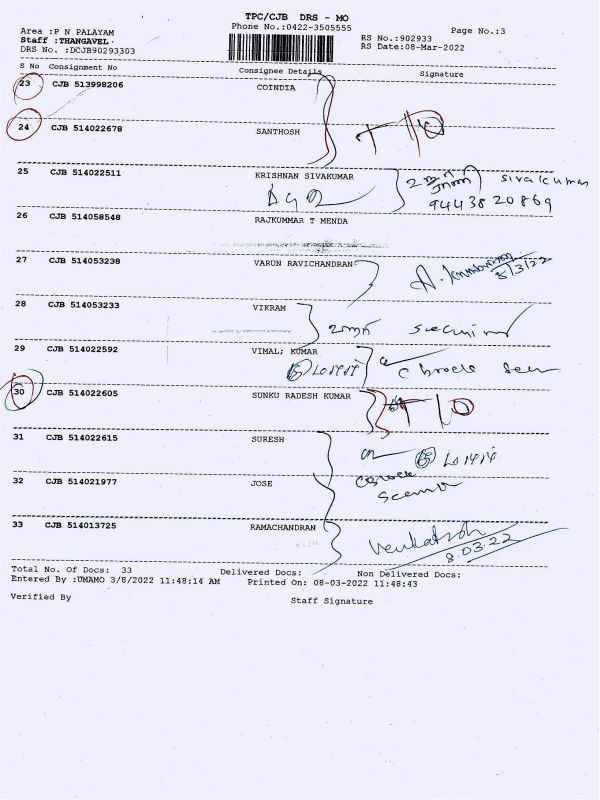 TPC/CJB DRS - MO
Area :P N PALAYAM Phone No.:0422-3505555 Page No.:3
Staff :THANGAVEL. RS No.:902933
DRS No. :DCJB90293303 RS Date:08-Mar-2022
S No Consignment No Consignee Details Signature
23 CJB 513998206 COINDIA
24 CJB 514022678 SANTHOSH
25 CJB 514022511 KRISHNAN SIVAKUMAR sivakumar
9443820869
26 CJB 514058548 RAJKUMMAR T MENDA
27 CJB 514053238 VARUN RAVICHANDRAN
8/3/22
28 CJB 514053233 VIKRAM
29 CJB 514022592 VIMAL; KUMAR
C brock
30 CJB 514022605 SUNKU RADESH KUMAR
31 CJB 514022615 SURESH
32 CJB 514021977 JOSE
33 CJB 514013725 RAMACHANDRAN
Venkatesh
8.03.22
Total No. Of Docs: 33 Delivered Docs: Non Delivered Docs:
Entered By :UMAMO 3/8/2022 11:48:14 AM Printed On: 08-03-2022 11:48:43
Verified By Staff Signature